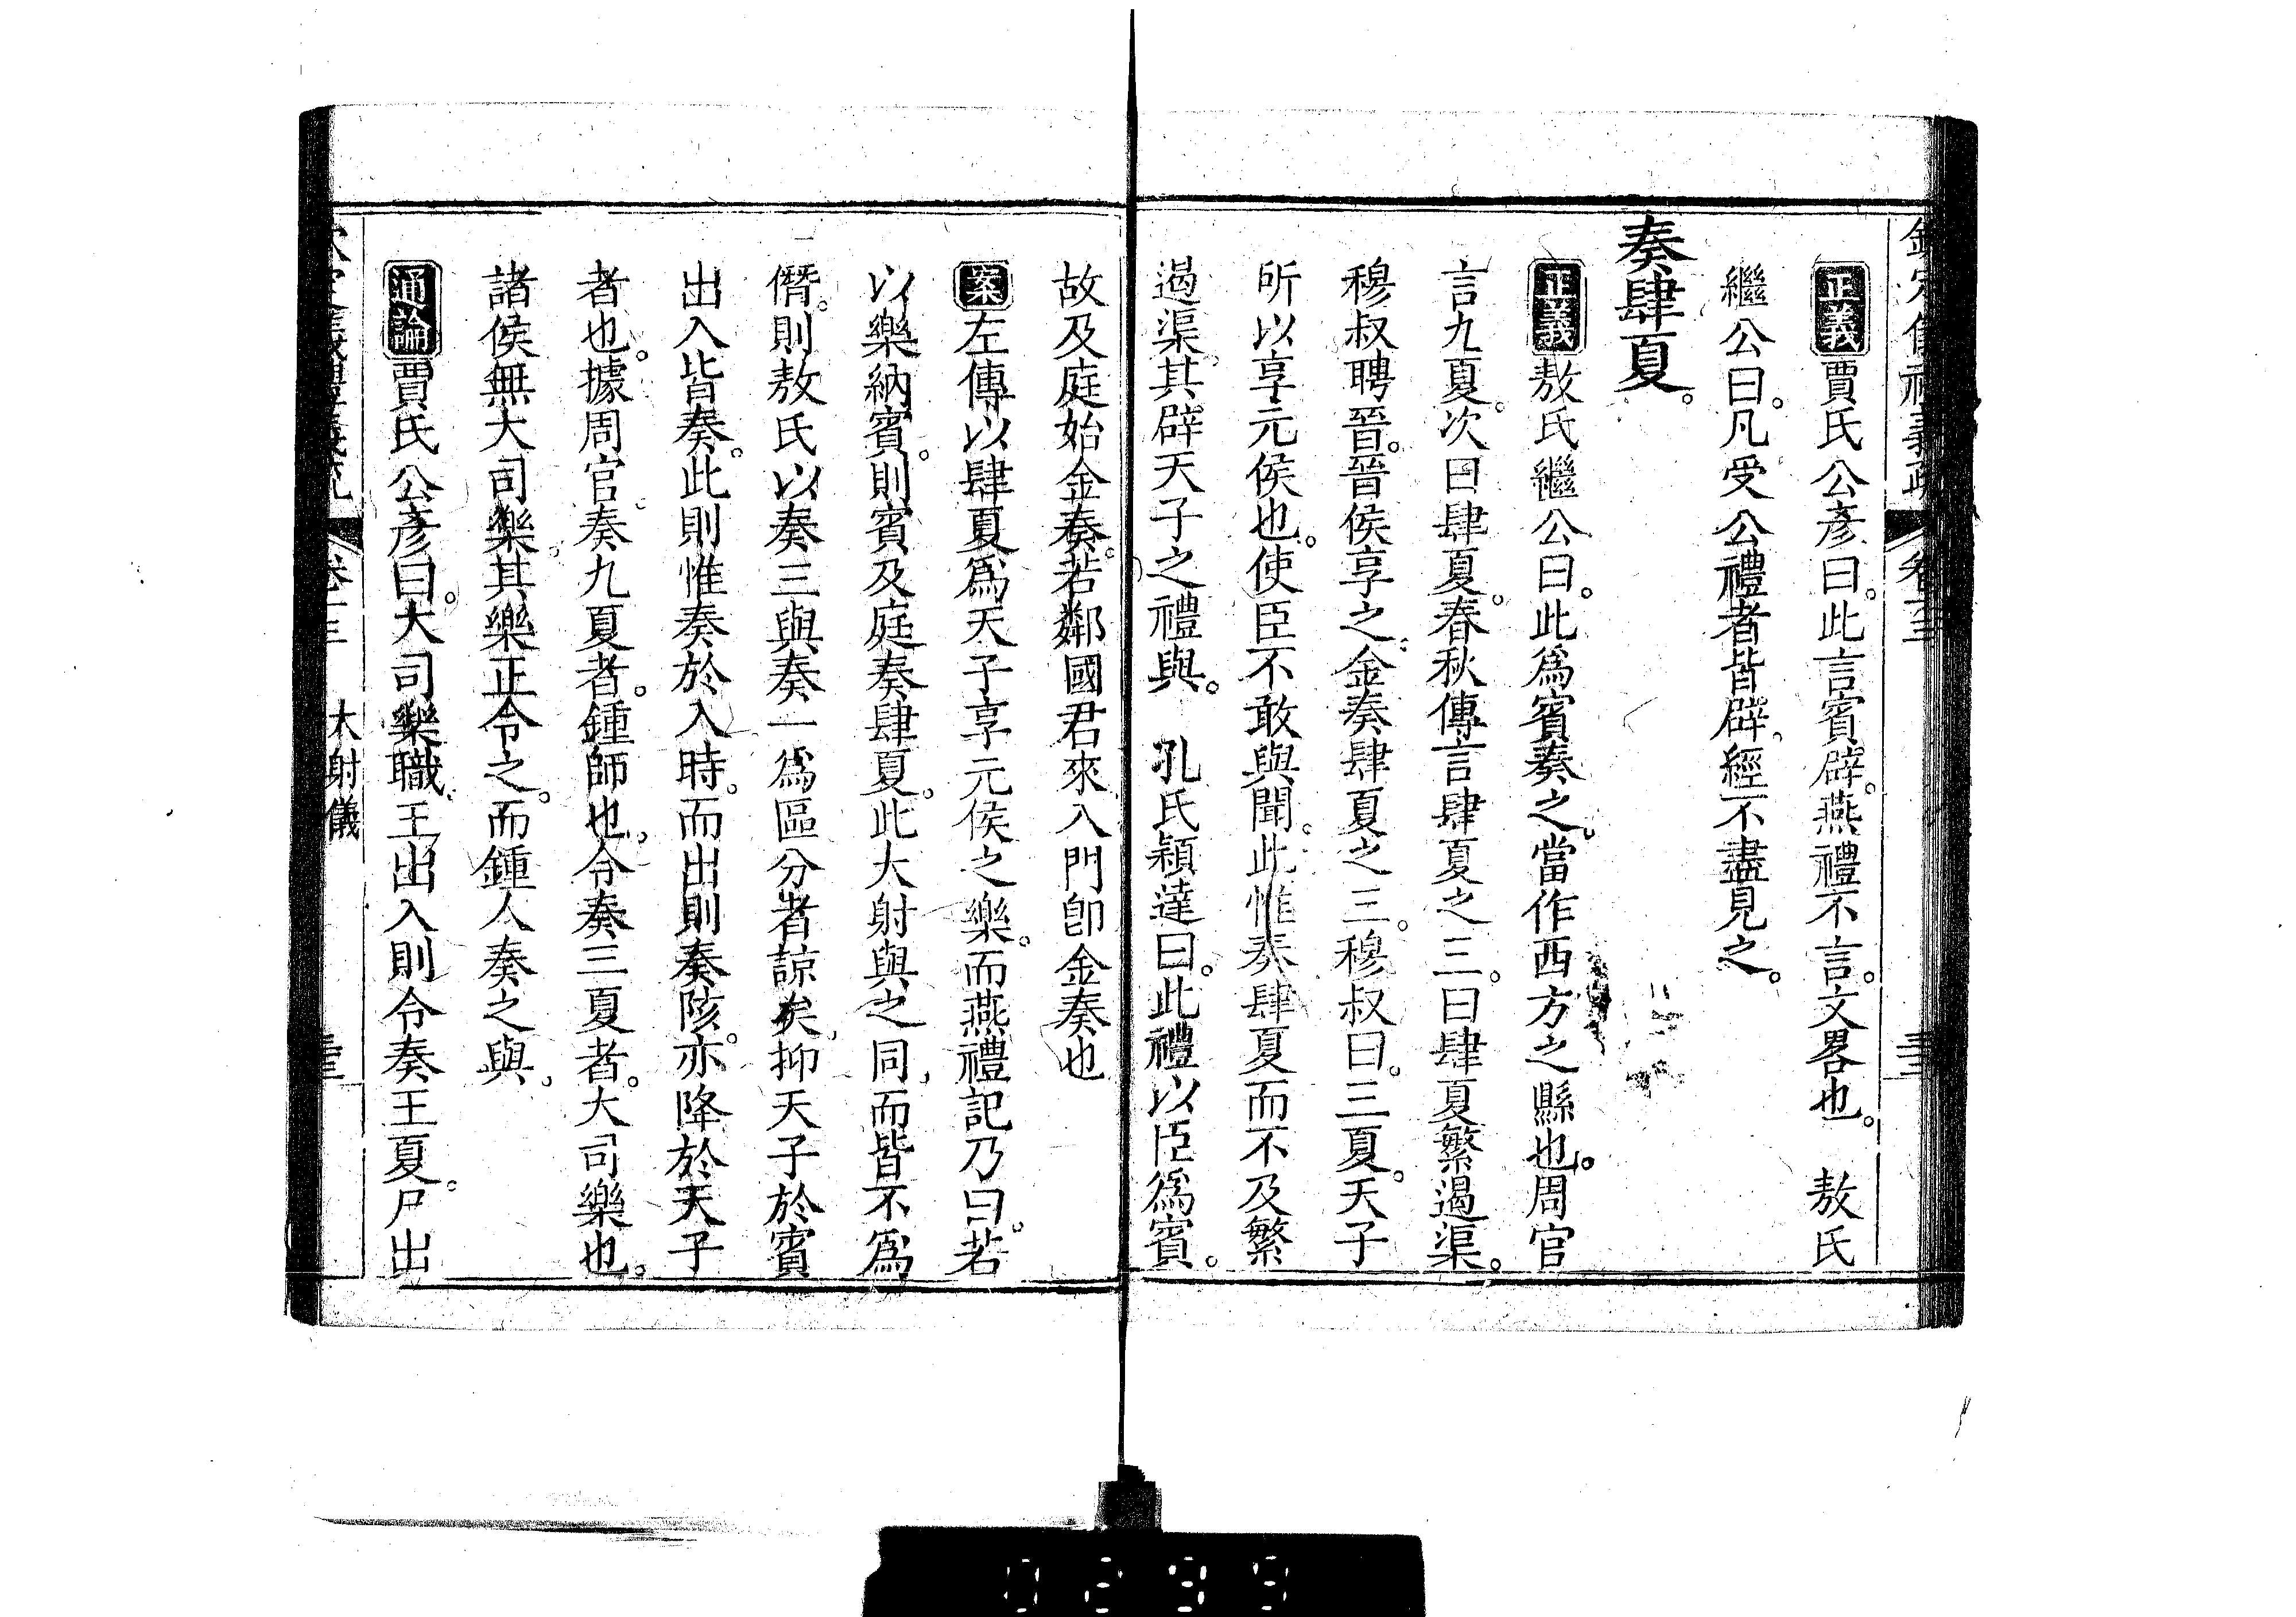 正義賈氏公彥曰。此言賓辟。燕禮不言。文畧也。 敖氏
繼公曰。凡受公禮者皆辟。經不盡見之。
奏肆夏。
正義敖氏繼公曰。此爲賓奏之。當作西方之縣也。周官
言九夏。次曰肆夏。春秋傳言肆夏之三。曰肆夏繁遏渠。
穆叔聘晉。晉侯享之。金奏肆夏之三。穆叔曰。三夏。天子
所以享元侯也。使臣不敢與聞。此惟奏肆夏而不及繁
遏渠。其辟天子之禮與。 孔氏穎達曰。此禮以臣爲賓。
故及庭始金奏。若鄰國君來入門卽金奏也
案左傳以肆夏爲天子享元侯之樂。而燕禮記乃曰。若
以樂納賓。則賓及庭奏肆夏。此大射與之同。而皆不爲
僭。則敖氏以奏三與奏一爲區分者諒矣。抑天子於賓
出入皆奏。此則惟奏於入時。而出則奏陔。亦降於天子
者也。據周官。奏九夏者。鍾師也。令奏三夏者。大司樂也。
諸侯無大司樂。其樂正令之。而鍾人奏之與。
通論賈氏公彥曰。大司樂職。王出入則令奏王夏。尸出
大射儀